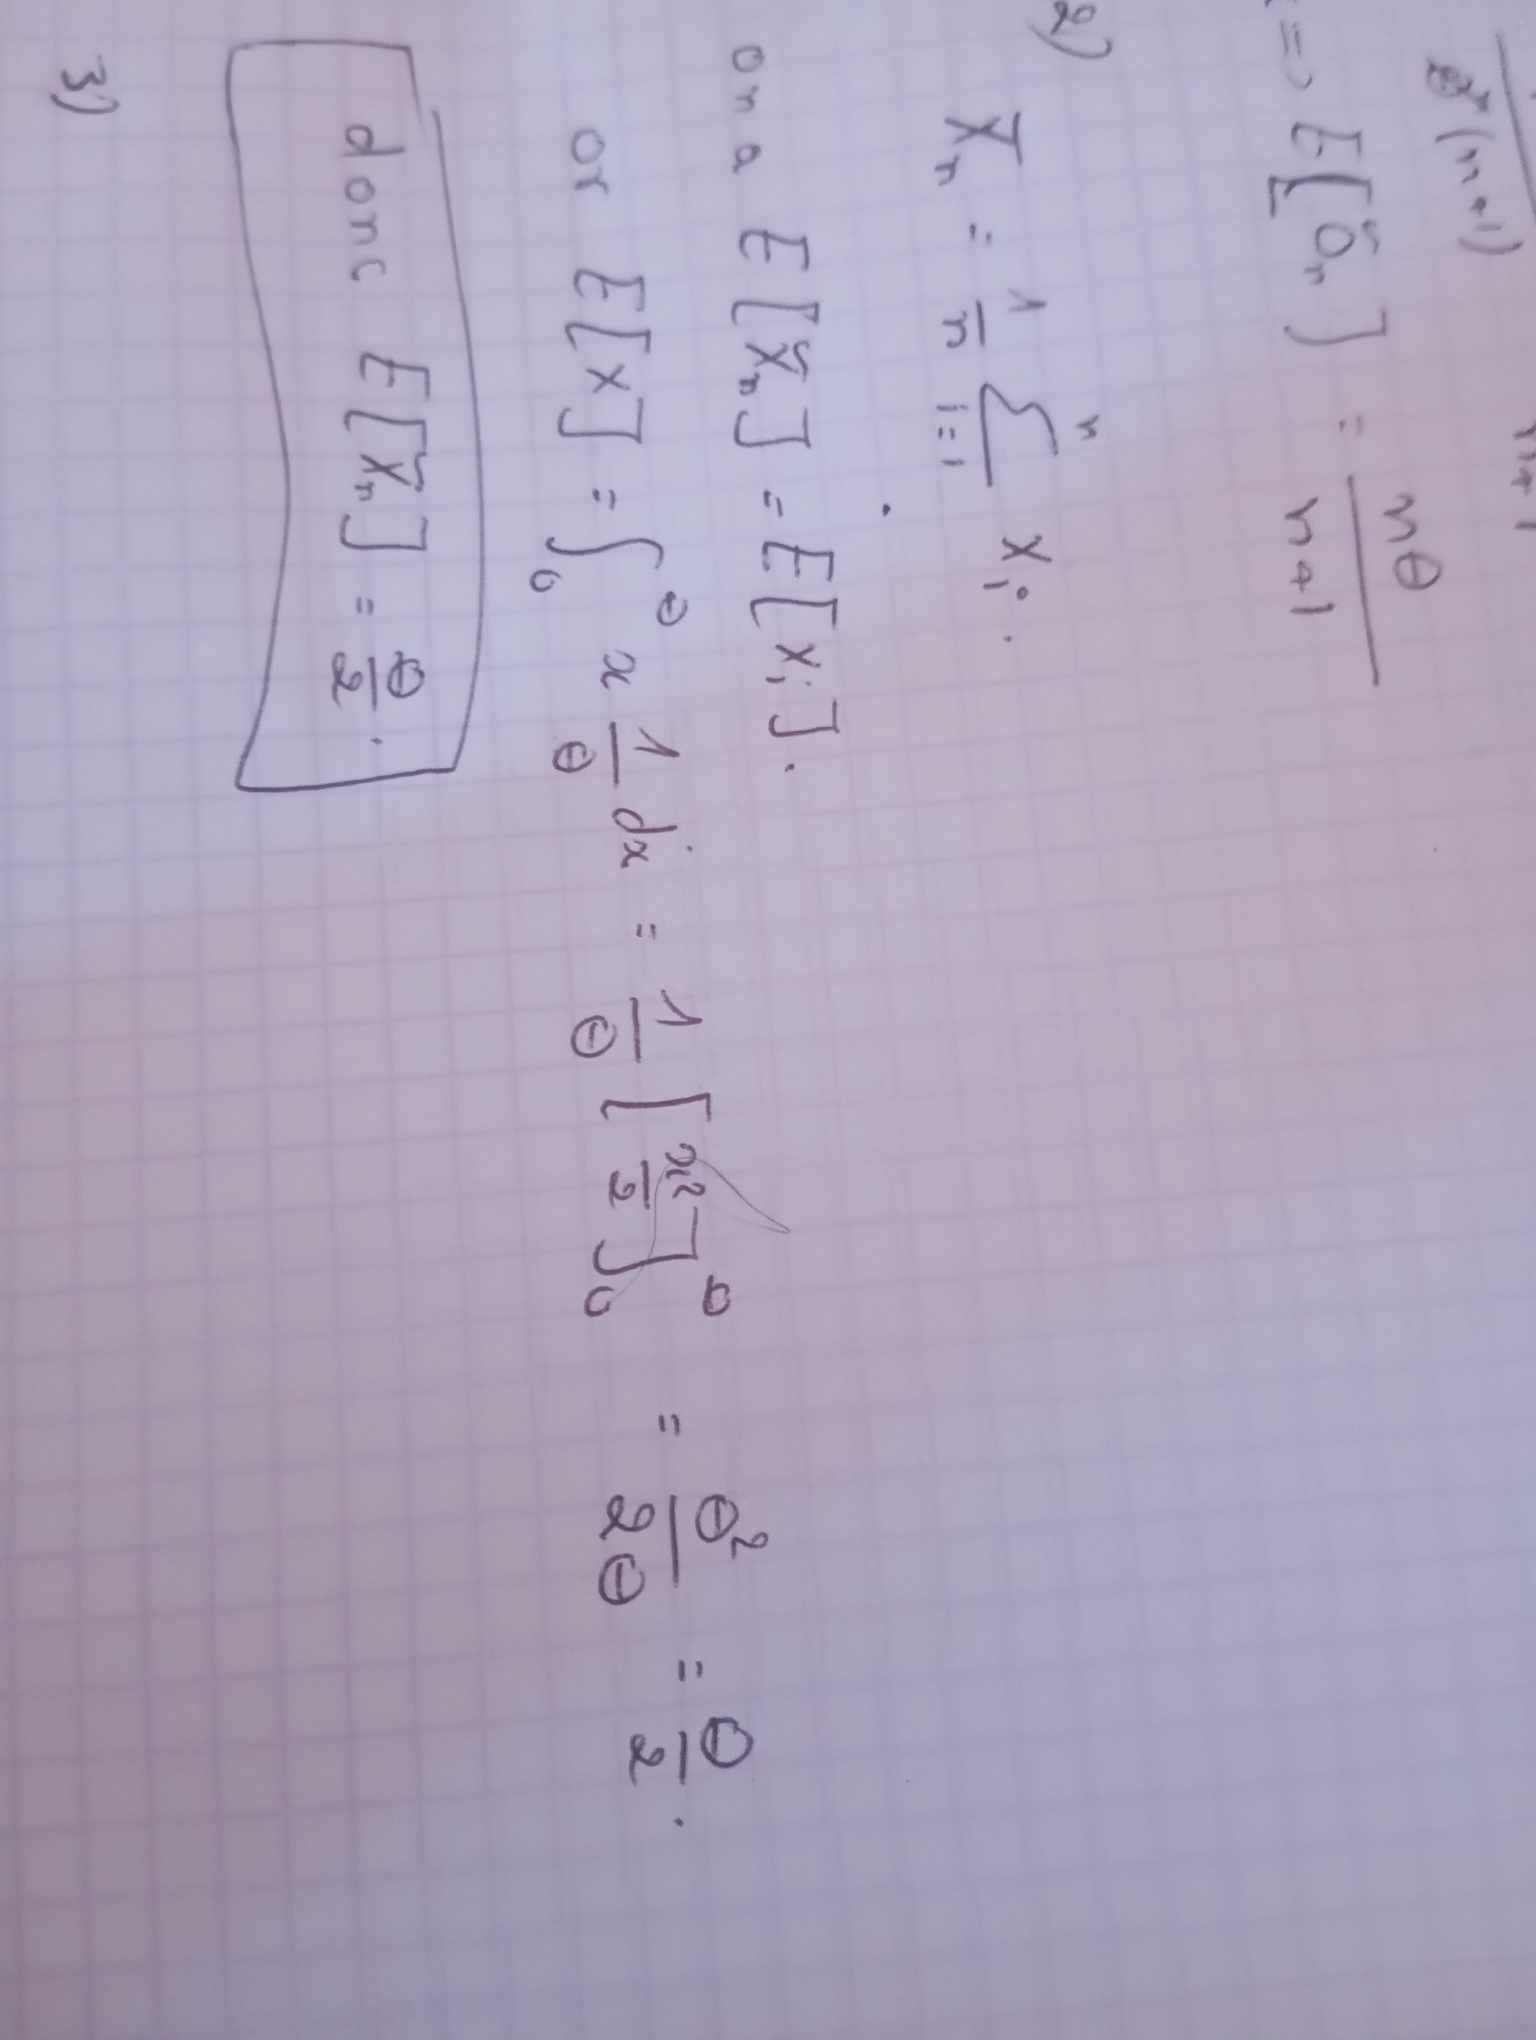 (n+1)
=> E[θ̂n] = nθ / n+1
2)
X̄n = 1/n Σ_{i=1}^{n} Xi.
on a E[X̄n] = E[Xi].
or E[X] = ∫_0^θ x 1/θ dx = 1/θ [x²/2]_0^θ = θ²/2θ = θ/2.
donc E[X̄n] = θ/2.
3)